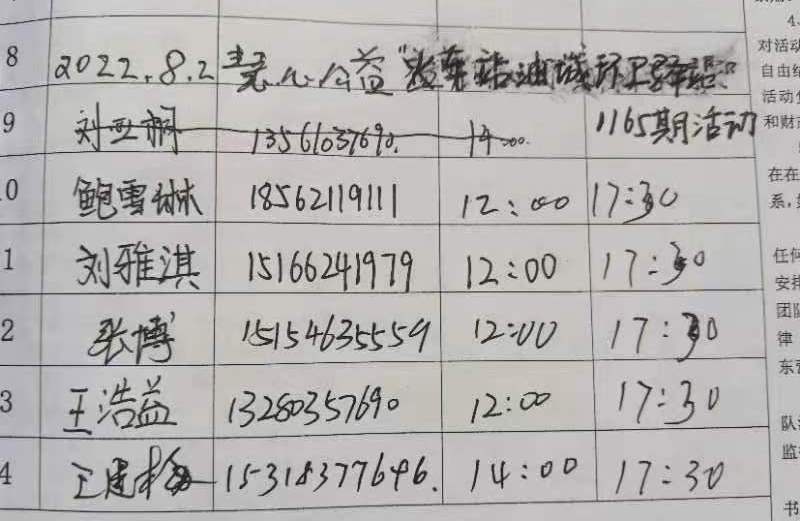 8 2022.8.2 公益"发车站油城环卫驿站"
9 刘亚桐 13561037690. 14:00. 1165期活动
0 鲍雪琳 18562119111 12:00 17:30
1 刘雅淇 15166241979 12:00 17:30
2 张博 15154635559 12:00 17:30
3 王浩益 13280357690 12:00 17:30
4 王建 15318377646. 14:00 17:30
4.
对活动
自由结
活动
和财
在在
系,
任何
安排
团队
律
东营
队
监
书